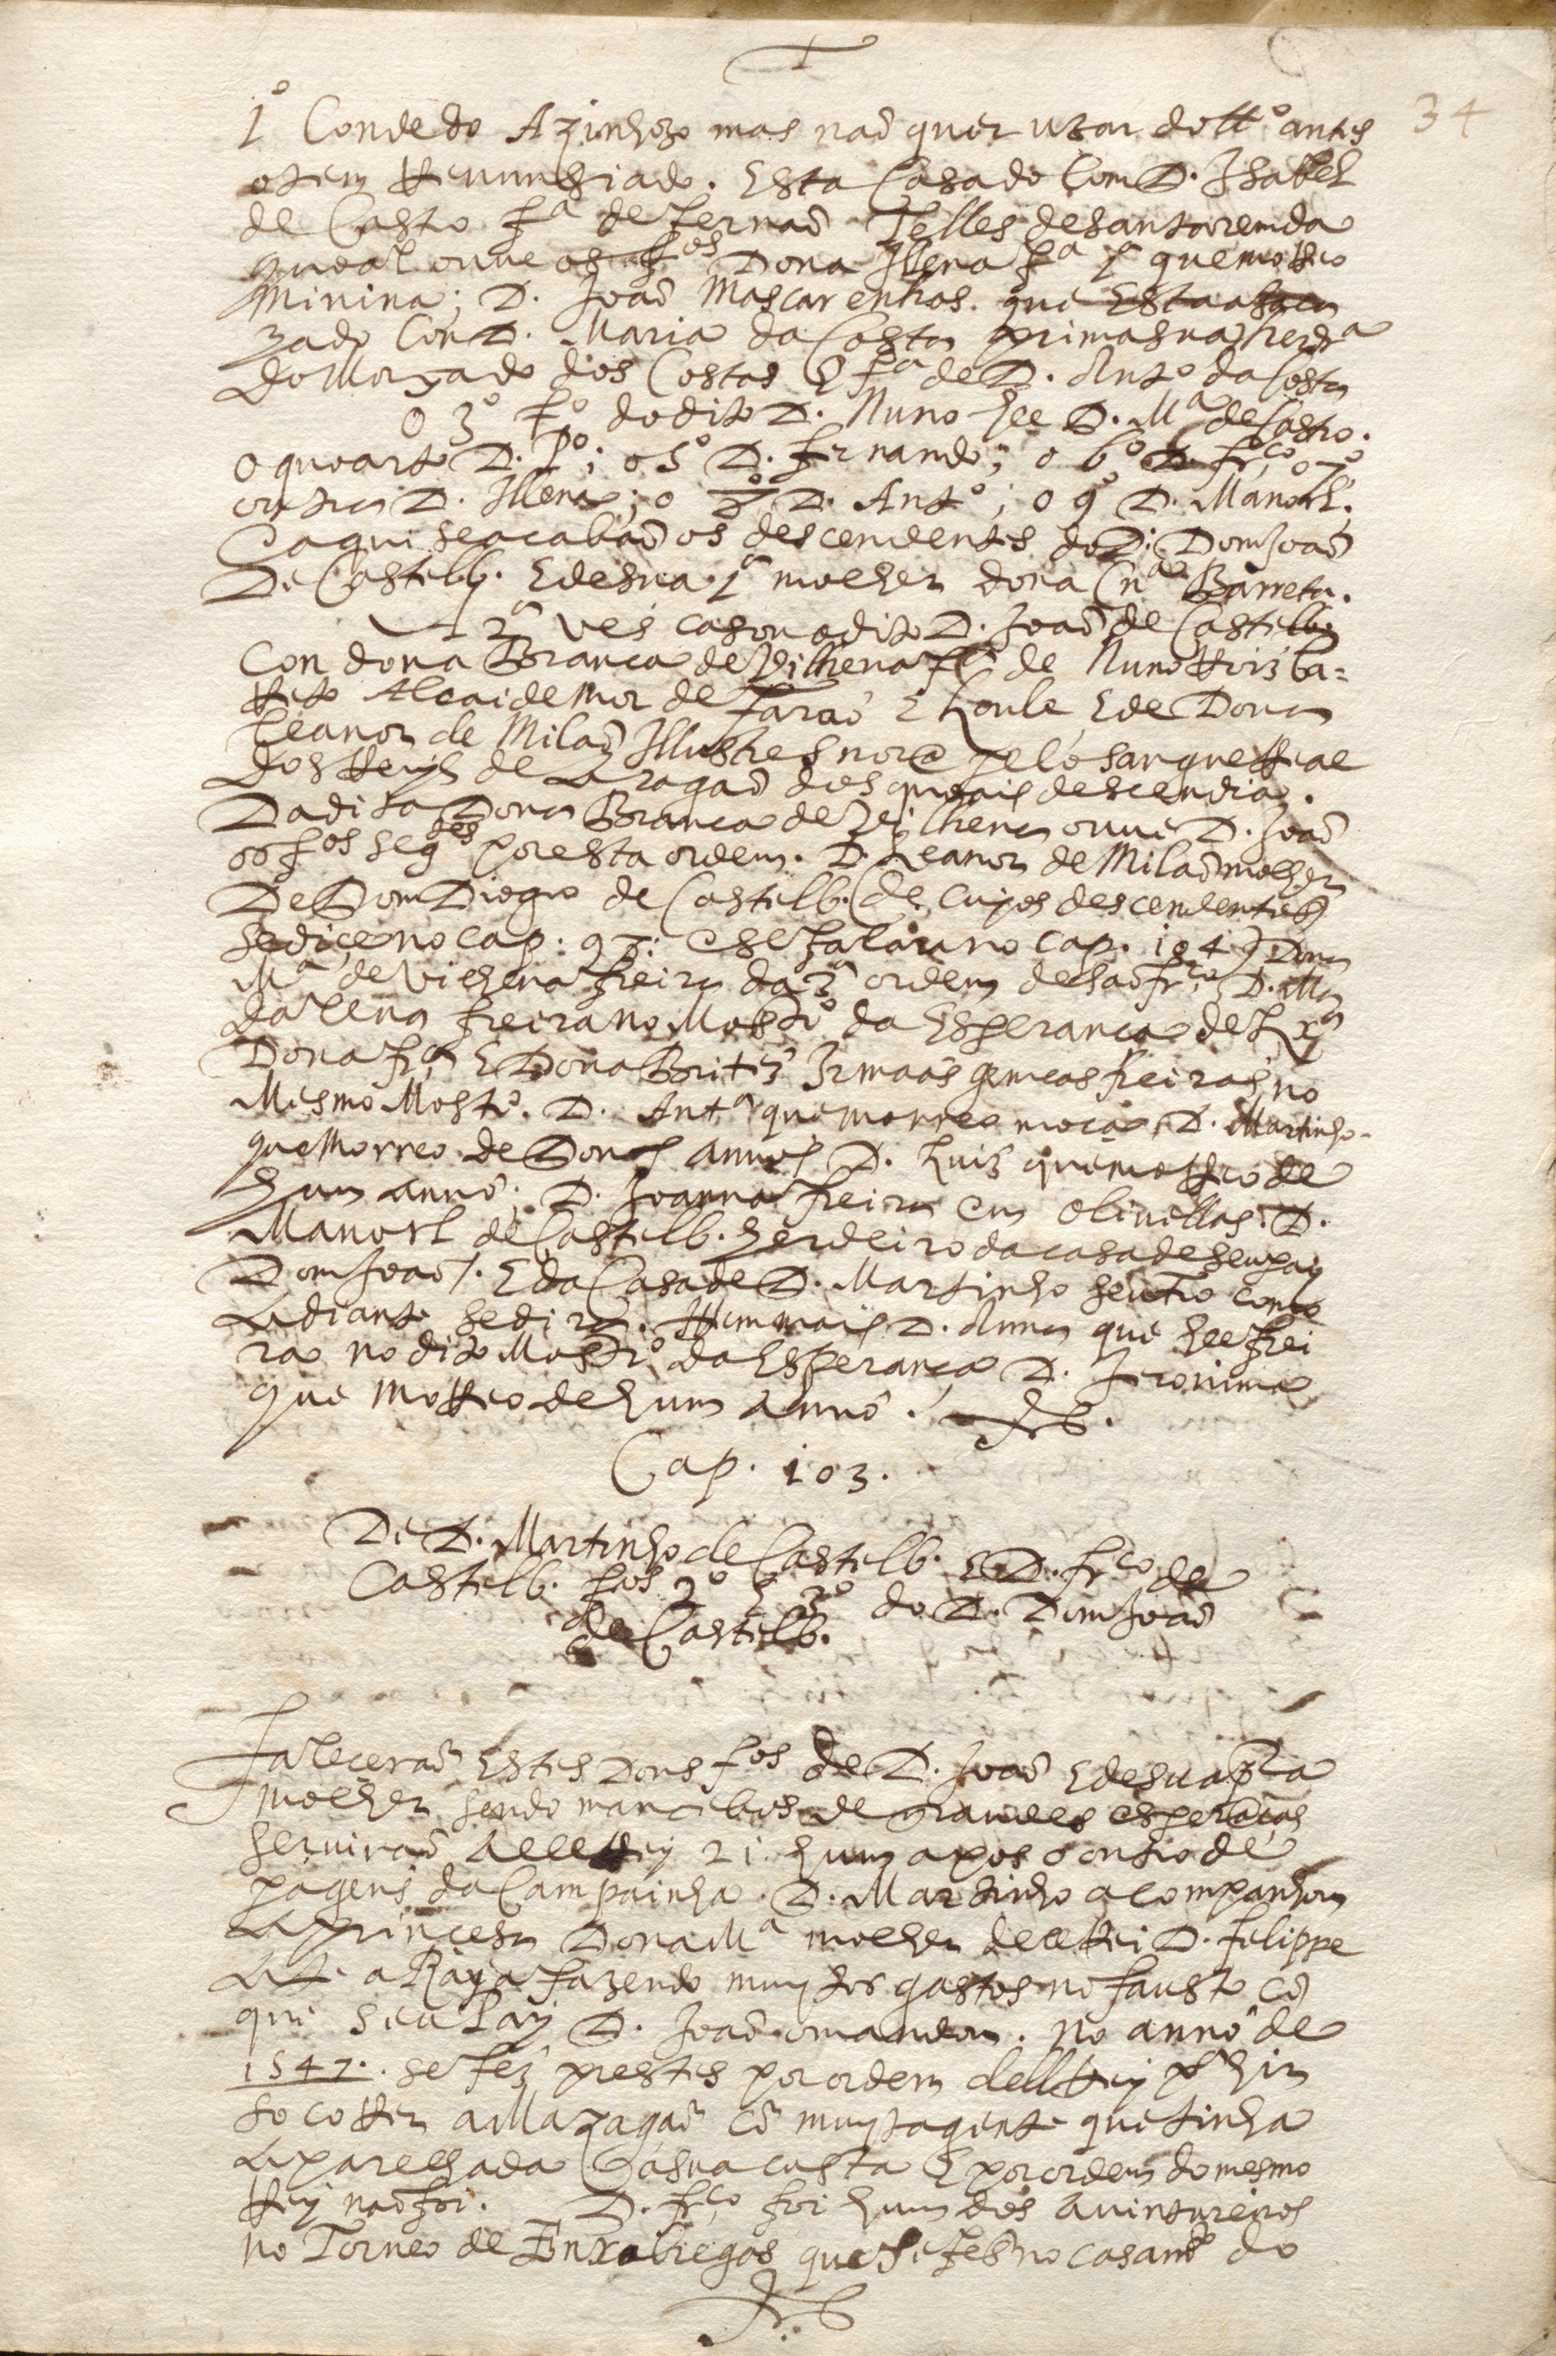 34
1º Conde do Azinhozo mas naõ quer uzar do ttº antes
o tem Renunsiado. Esta Casado Com D. Isabel
de Casto fª de fernaõ Telles de santarem da
qual ouue os fos Dona Illena fª 1ª que morreo
Minina; D. Joaõ Mascarenhas. que Esta
zado Con D. Maria da Costa prima sua herdrª
do Morgado dos Costas E fª de D. Antº da Costa
O 3º fº do dito D. Nuno hee D. Mª de Castro.
o quarto D. Pº; o 5º D. fernando; o 6º D. frcº o 7º
outra D. Illena; o 8º D. Antº; o 9º D. Manoel.
E aqui se acabaõ os descendentes do D. Dom Joaõ
De Castelb. E de sua 1ª molher dona Cnª Barreta.
2ª ves casou o dito D. Joaõ de Castelb
Con dona Branca de Vilhena fª de Nuno Roiz ba-
Reto Alcaide Mor de faraõ E Loule E de Dona
Leanor de Milaõ Illustre snorª pelo sangue Real
dos Reys de Aragaõ dos quais descendia.
Da dita Dona Branca de Vilhena ouue D. Joaõ
os fos segtes por esta ordem. D. Leanor de Milaõ molher
De Dom Diogo de Castelb. (de cujos descendentes
se dice no cap: 97: E se falara no Cap. 104) Dona
Mª de Vilhena freira da 3ª ordem de saõ frcº D. Ma
dalena freira no Mostrº da Esperanca de Lxª
Dona frcª E Dona Britiz Irmaãs gemeas freiras no
Mesmo Mostrº. D. Antª que morreo moca, D. Martinho
que Morreo de Dous annos D. Luis que morreo de
hum anno; D. Joanna freira em Oliuellas D.
Manoel de Castelb. herdeiro da casa de seu pay
Dom Joaõ. E da Casa de D. Martinho seu tio como
Adiante se dira. Item mais D. Anna que hee frei
ra no dito Mostrº da Esperança D. Jeronima
que morreo de hum anno.
Cap. 103.
De D. Martinho de Castelb. E D. frcº de
Castelb. fos 2º E 3º do D. Dom Joaõ
de Castelb.
faleceraõ Estes Dous fos de D. Joaõ E de sua prª
molher sendo mancebos de grandes esperãças
seruiraõ a ell Rey hum apos o outro de
pagens da Campainha. D. Martinho acompanhou
a princesa Dona Mª molher dell Rei D. felippe
Ate a Raya fazendo muytos gastos no fausto cõ
que seu Pay D. Joaõ o mandou. No anno de
1547. se fez prestes por ordem dell Rey pª hir
socorrer a Mazagaõ cõ muyta gente que tinha
aparelhada a sua custa E por ordem do mesmo
Rey naõ foi. D. frcº foi hum dos auintureiros
no Torneo de Enxobregas que se fes no casamtº do